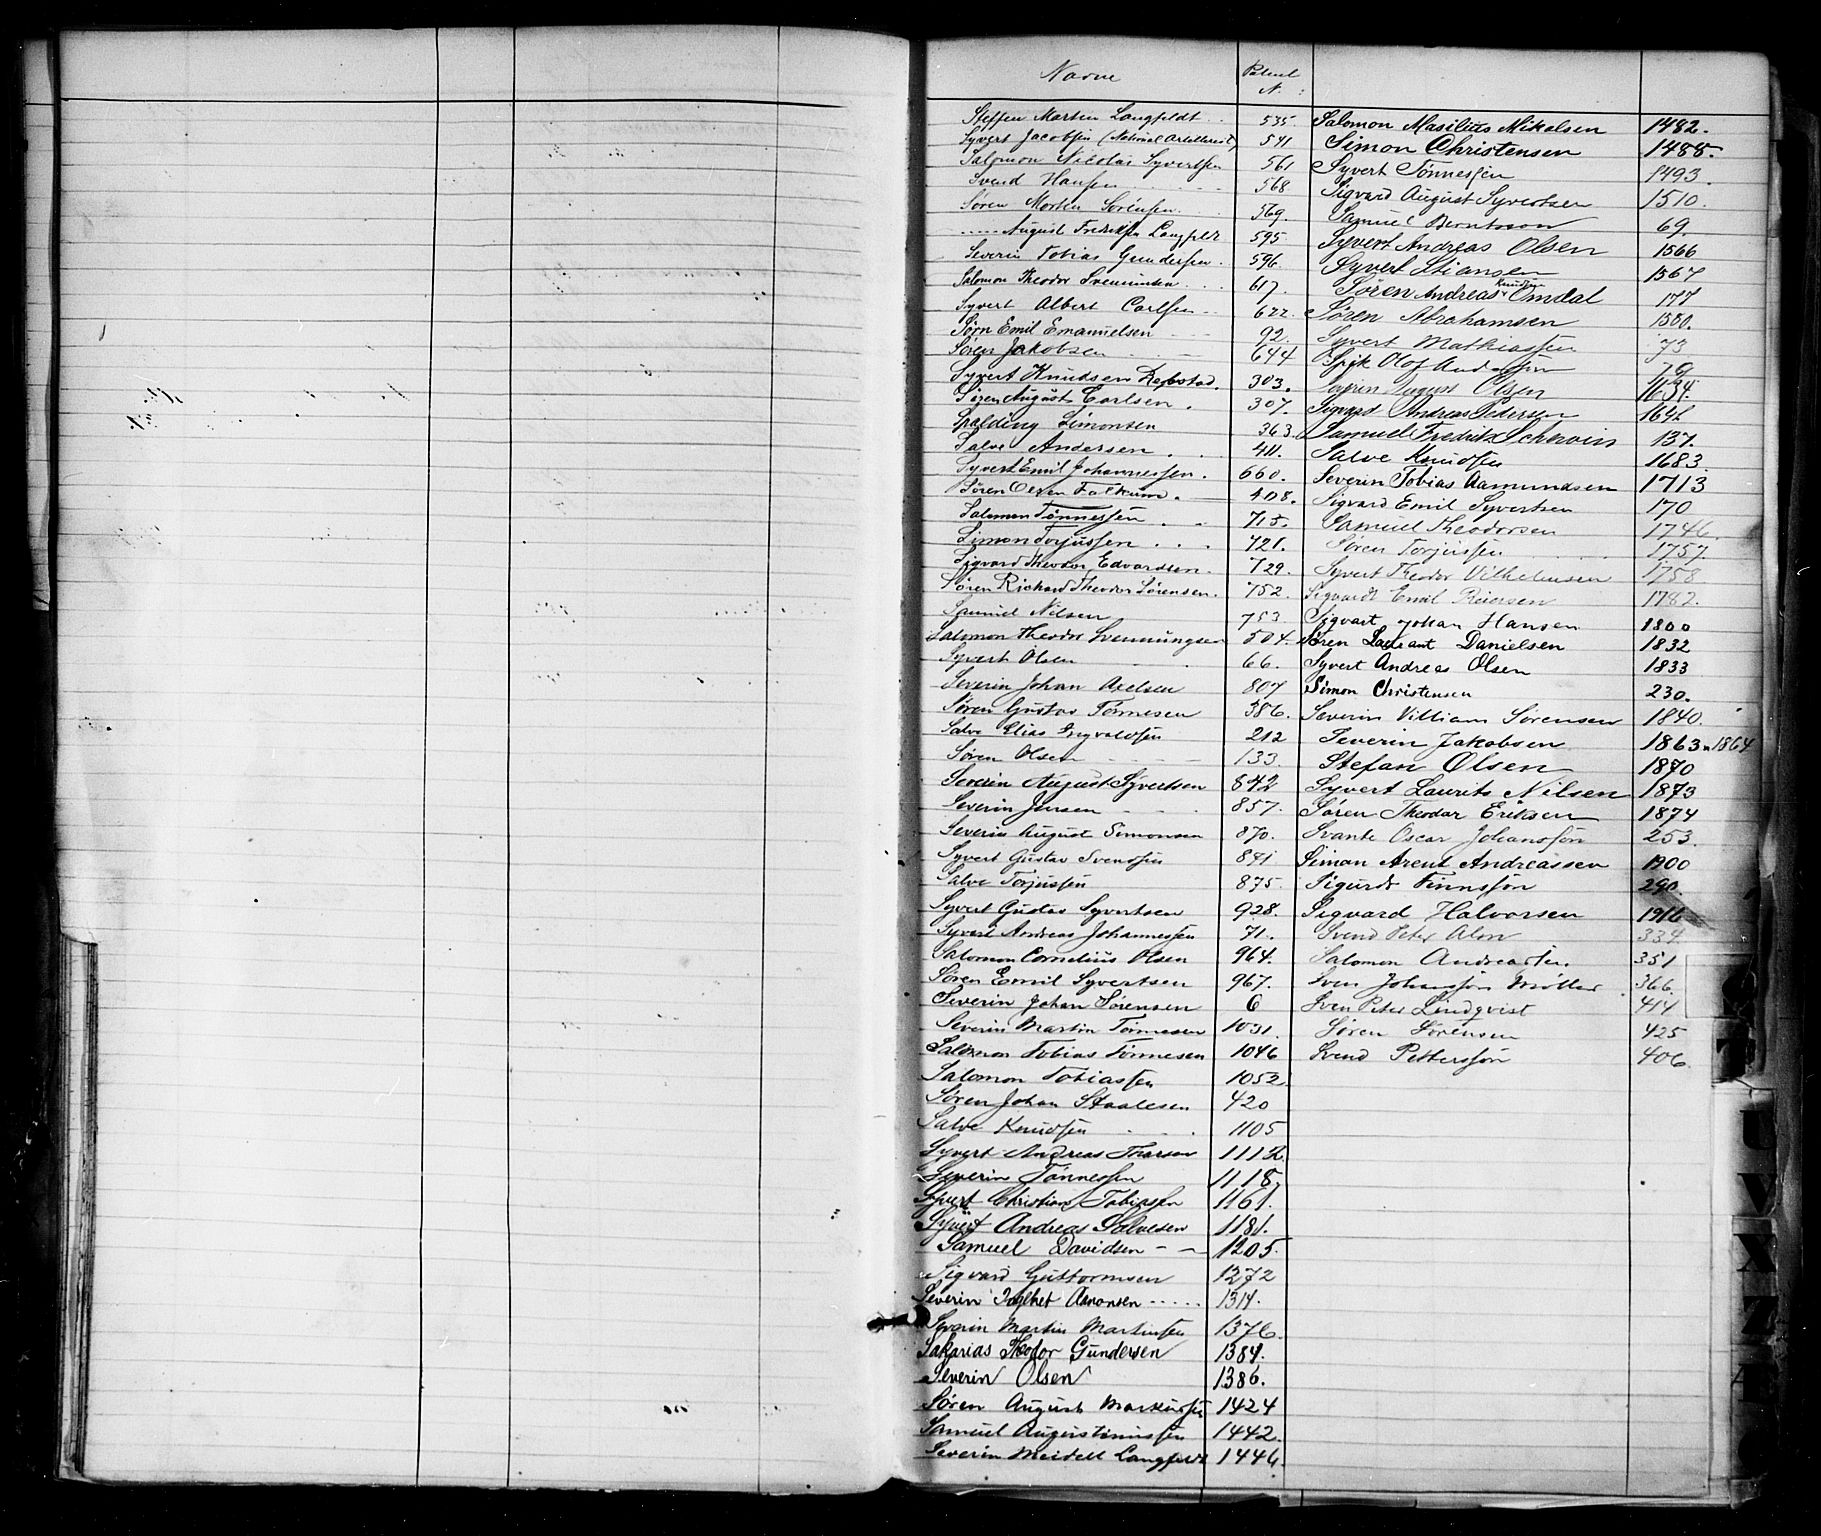 Navne
Patent
N.
Steffen Marten Langfeldt 535.
Syvert Jacobsen (National Artillerist) 541
Salomon Nicolai Syvertsen 561
Svend Hansen 568
Søren Morten Sørensen 569.
----- August Fredriksen Langfeldt 595
Severin Tobias Gundersen 596.
Salomon Theodor Svenningsen 617.
Syvert Albert Carlsen 622.
Sørn Emil Emanuelsen 92.
Søren Jakobsen 644
Syvert Knudsen Repstad. 303.
Søren August Carlsen. 307.
Spalding Simonsen 363.
Salve Andersen 411.
Syvert Emil Johannessen. 660.
Søren Olsen Falkum. 408.
Salomon Tønnessen 715.
Simon Torjussen 721.
Sigvard Theodor Edvardsen. 729.
Søren Richard Theodor Sørensen. 752.
Samuel Nilsen 753
Salomon Theodor Svenningsen 504.
Syvert Olsen 66.
Severin Johan Axelsen 807
Søren Gustav Tønnesen 386.
Salve Elias Ingvaldsen 212
Søren Olsen 133
Severin August Syvertsen 842
Severin Jensen 857.
Severin August Simonsen 870.
Syvert Gustav Svendsen 841.
Salve Torjussen 875.
Syvert Gustav Syvertsen 928.
Syvert Andreas Johannessen 71.
Salomon Cornelius Olsen 964.
Søren Emil Syvertsen 967.
Severin Johan Sørensen 6
Severin Martin Tønnesen 1031.
Salomon Tobias Tønnesen 1046
Salomon Tobiassen 1052
Søren Johan Staalesen 420
Salve Knudsen 1105
Syvert Andreas Thorsen 1112
Severin Tønnessen 1118,
Syvert Christian Tobiassen 1161.
Syvert Andreas Salvesen 1181.
Samuel Davidsen 1205.
Sigvard Guttormsen 1272
Severin Asmonsen 1314.
Severin Martin Martinsen 1376.
Sakarias Teodor Gundersen 1384.
Severin Olsen 1386.
Søren August Markussen 1424
Samuel Augustinussen 1442.
Severin Meidell Langfeldt 1446.
Salomon Masilius Mikalsen 1482.
Simon Christensen 1485.
Syvert Tønnessen 1493.
Sigvard August Syvertsen 1510.
Samuel Berntsson 69.
Syvert Andreas Olsen 1566
Syvert Stiansen 1567
Knudsen
Søren Andreas Omdal 177
Søren Abrahamsen 1580.
Syvert Mathiassen 73
Olof Andersson 79
Severin August Olsen 1634.
Sigvard Andreas Pedersen 1642
Samuel Fredrik Schervin 137.
Salve Knudsen 1683.
Severin Tobias Aamundsen 1713
Sigvard Emil Syvertsen 170
Samuel Theodorsen 1746.
Søren Torjussen 1757
Syvert Theodor Vilhelmsen 1758
Sigvardt Emil Reiersen 1782.
Sigvart Johan Hansen 1800
Søren Danielsen 1832
Syvert Andreas Olsen 1833
Simon Christensen 230.
Severin Villiam Sørensen 1840.
Severin Jakobsen 1863 1864
Stefan Olsen 1870
Syvert Laurits Nilsen 1873
Søren Theodor Eriksen 1874
Svante Oscar Johansson 253.
Simon Arent Andreassen 1900
Sigurdt Finnssön 290.
Sigvard Halvorsen 1916
Svend Peter Alm 334.
Salomon Andreasen. 351
Sven Johansson Møller 366.
Sven Peter Lindqvist 414
Søren Sørensen 425
Svend Pettersson 406
U
V
X
Z